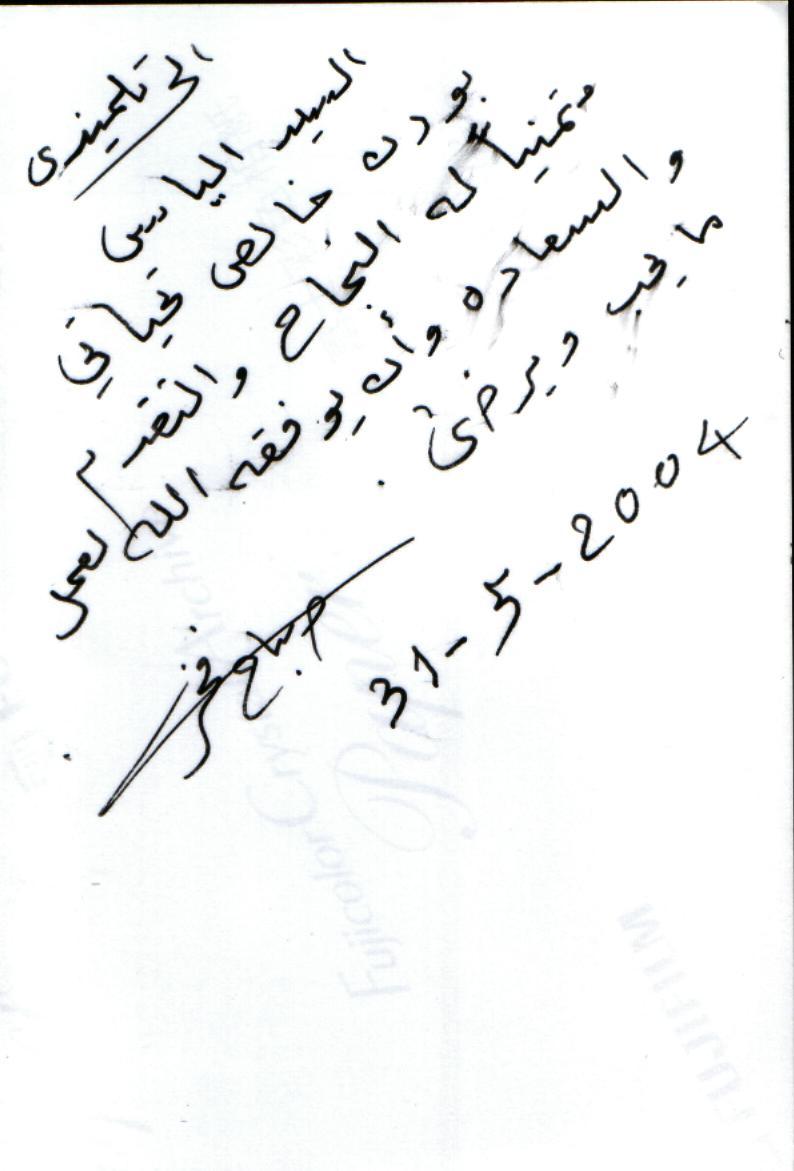 الى تلميذى
السيد الياس
بورت خالص تحياتي
متمنيا له النجاح والتقدم
والسعاده وأن يوفقه الله لعمل
ما يحب ويرضى .
31-5-2004
Fujicolor Crystal Archive
Paper
FUJIFILM